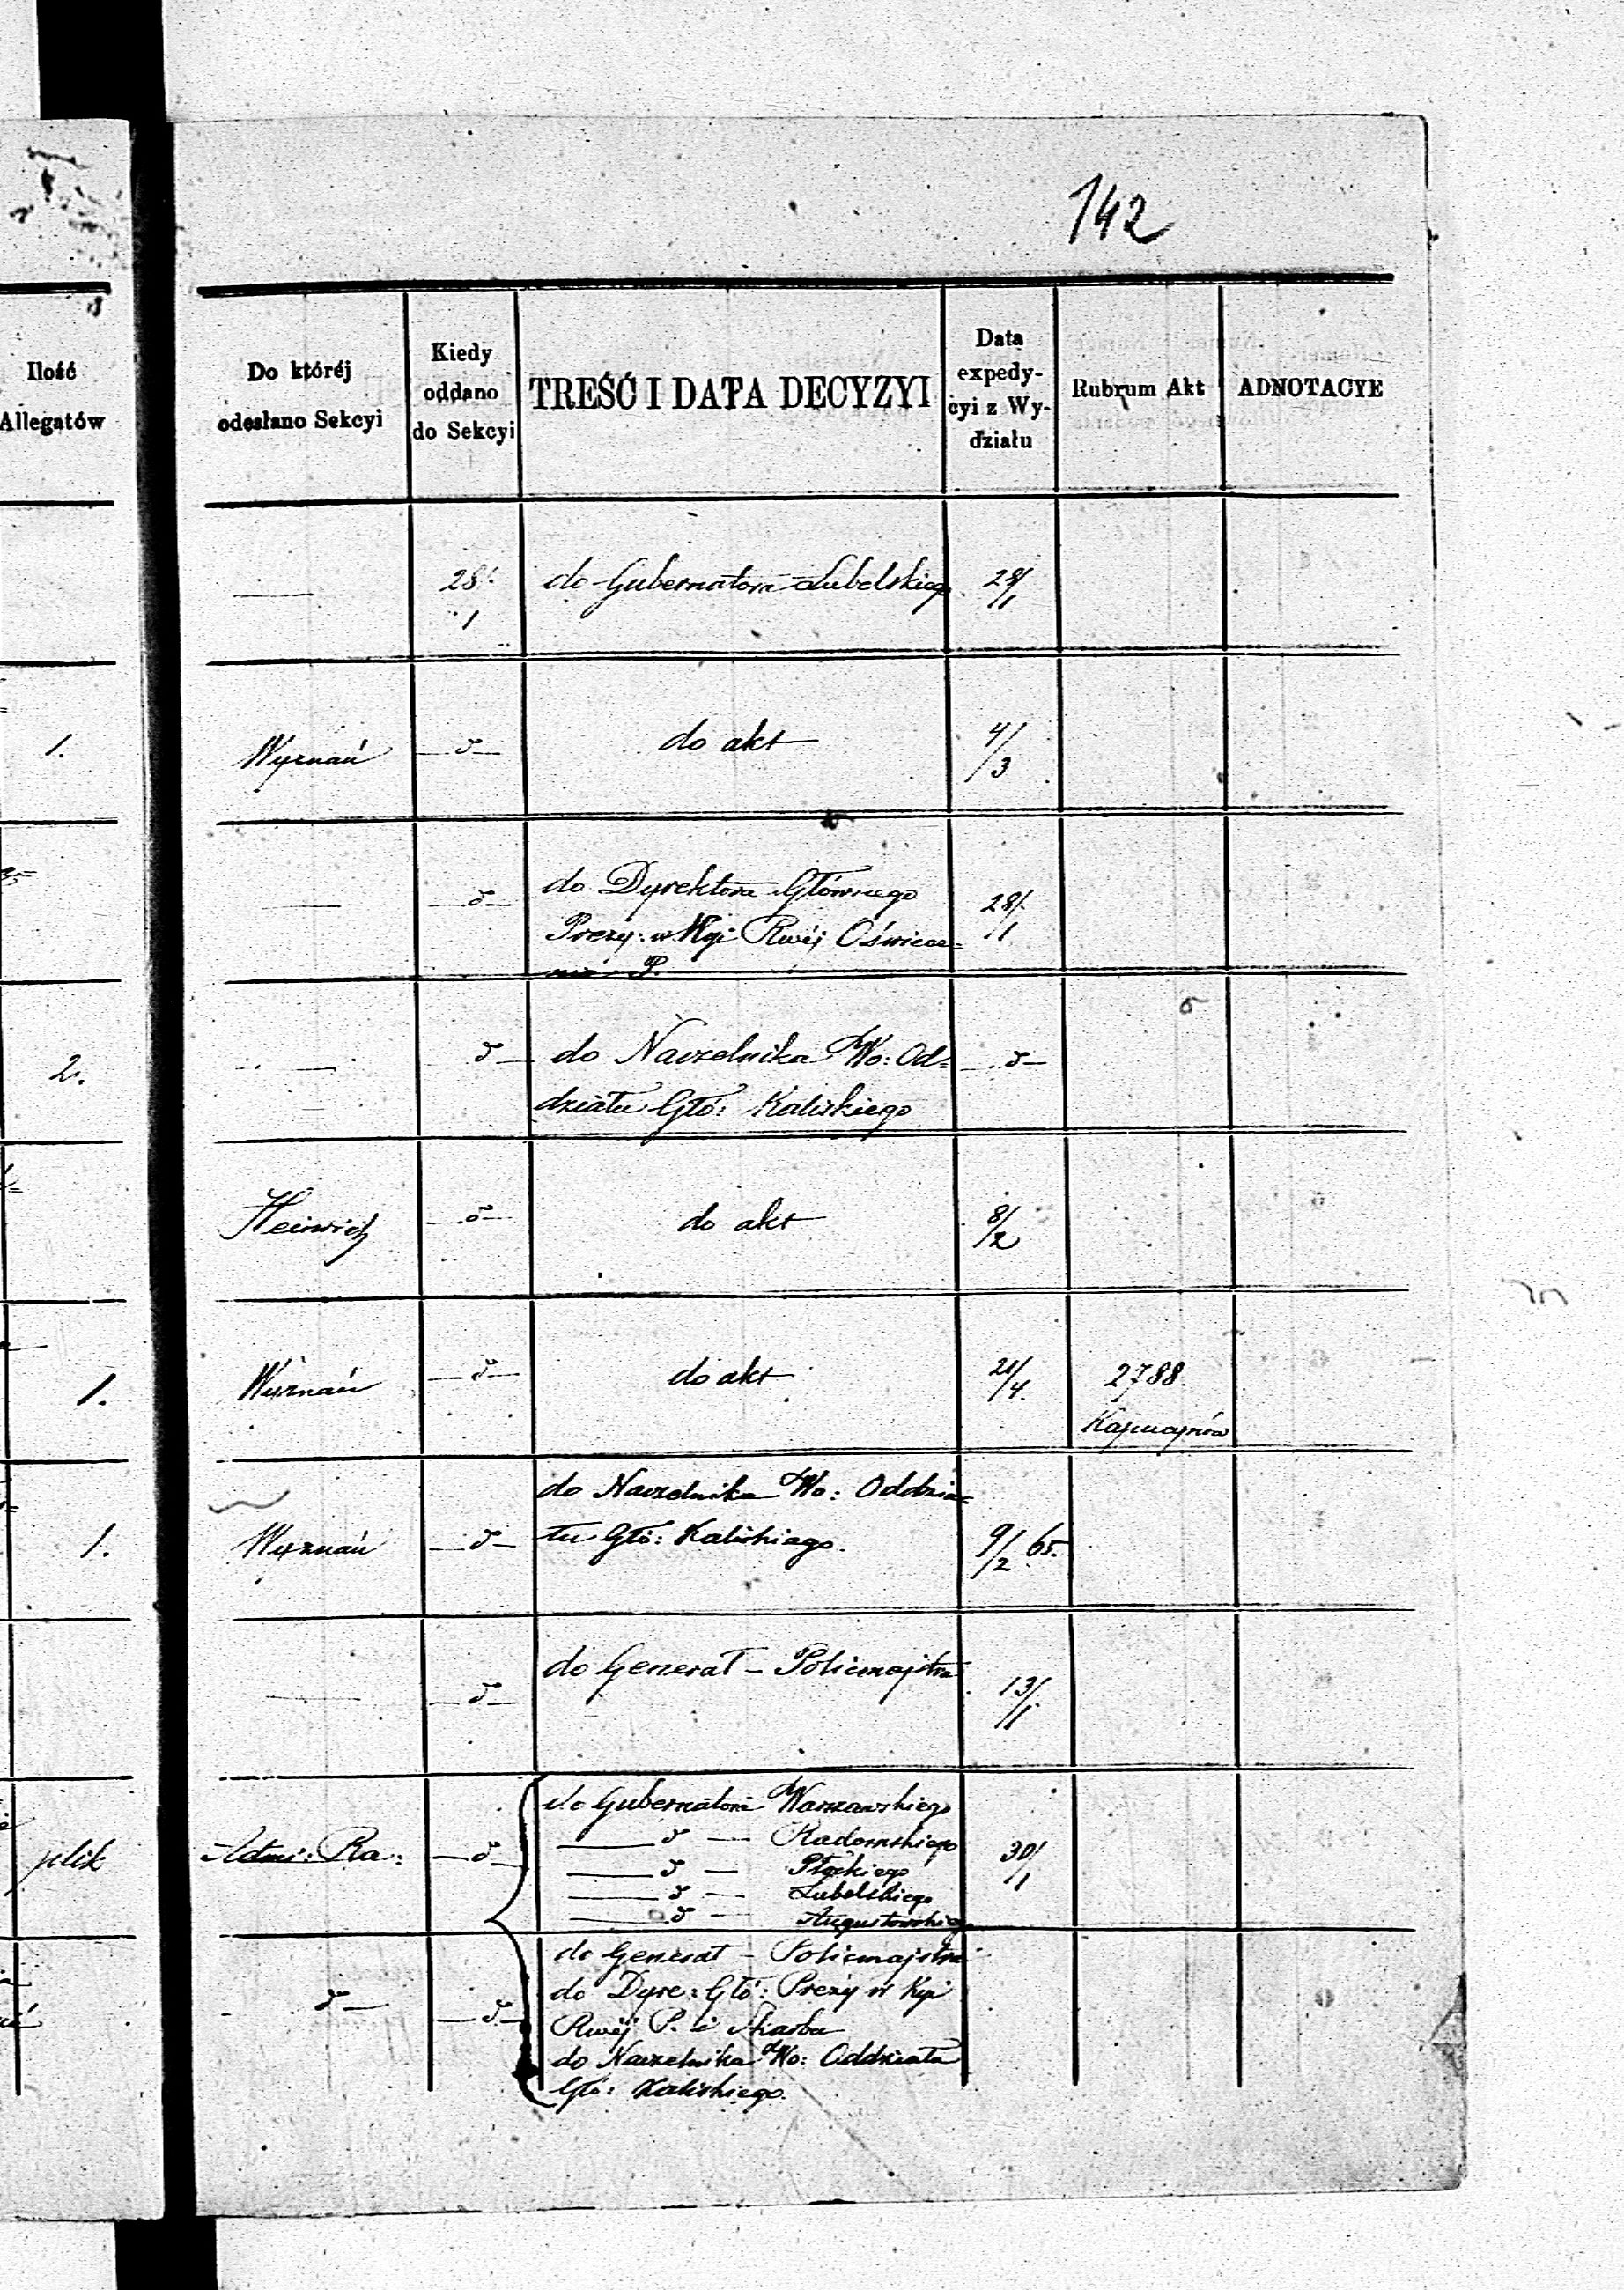 142
Ilość
Allegatów
Do któréj
odesłano Sekcyi
Kiedy
oddano
do Sekcyi
TREŚĆ I DATA DECYZYI
Data
expedy-
cyi z Wy-
działu
Rubrum Akt
ADNOTACYE
28/1 do Gubernatora Lubelskiego 28/1
1. Wyznań do akt 4/3
do Dyrektora Głównego
Prezy: w Kyi Rwéj Oświece=
nia P. 28/1
2. do Naczelnika Wo: Od=
działu Głó: Kaliskiego
Heinrich do akt 8/2
1. Wyznań do akt 21/4 2788
do Naczelnika Wo: Oddzia=
1. Wyznań łu Głó: Kaliskiego. 9/2 65.
do Generał - Policmajstra
13/1
plik Admi: Ra: do Gubernatora Warszawskiego 30/1
Radomskiego
Płockiego
Lubelskiego
Augustowskiego
do Generał - Policmajstra
do Dyre: Głó: Prezy w Kyi
Rwéj P. i Skarbu
do Naczelnika Wo: Oddziału
Głó: Kaliskiego.